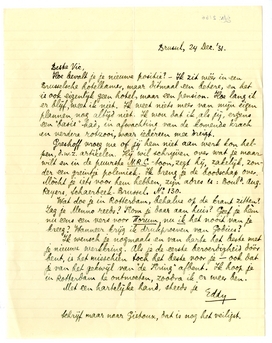 Brussel, 24 Dec. '31.
Beste Vic,
Hoe bevalt je je nieuwe positie? – Ik zit wéér in een
Brusselse hotelkamer, maar ditmaal een betere, en het
is ook eigenlijk geen hotel, maar een pension. Hoe lang ik
er blijf, weet ik niet. Ik weet niets meer van mijn eigen
plannen nog altijd niet. Ik nou ik als jij, ergens
een "basis" had, in afwachting van de komende krach
en verdere rotzooi, waar iedereen mee dreigt.
Greshoff vroeg me of jij hem niet aan werk kon hel-
pen, d.w.z. artikelen. Hij wil schrijven over wat je maar
wilt en in de puurste N.R.C.-toon, zegt hij, zakelijk, zon-
der een greintje polemiek. Ik breng je de boodschap over.
Mocht je iets voor hem hebben, zijn adres is: Boul. Aug.
Reyers, Schaerbeek-Brussel, 130.
Wat doe je in Rotterdam, behalve of de krant zitten?
Zeg je Menno reeds? Kom je daar aan huis? Geef je hem
nu eens een vers voor Forum, nu je het nood van je
kreeg? Wanneer krijg ik drukproeven van Jobius?
Ik wensch je nogmaals en van harte het beste met
je nieuwe werkkring. Als je de eerste beroerdigheid door
bent, is het misschien toch het beste voor je – ook dat
je van het gekwijl van de "Kring" afbent. Ik hoop je
in Rotterdam te ontmoeten, zoodra ik er weer ben.
Met een hartelijke hand, steeds je
Eddy
Schrijf maar naar Gistoux, dat is nog het veiligst.